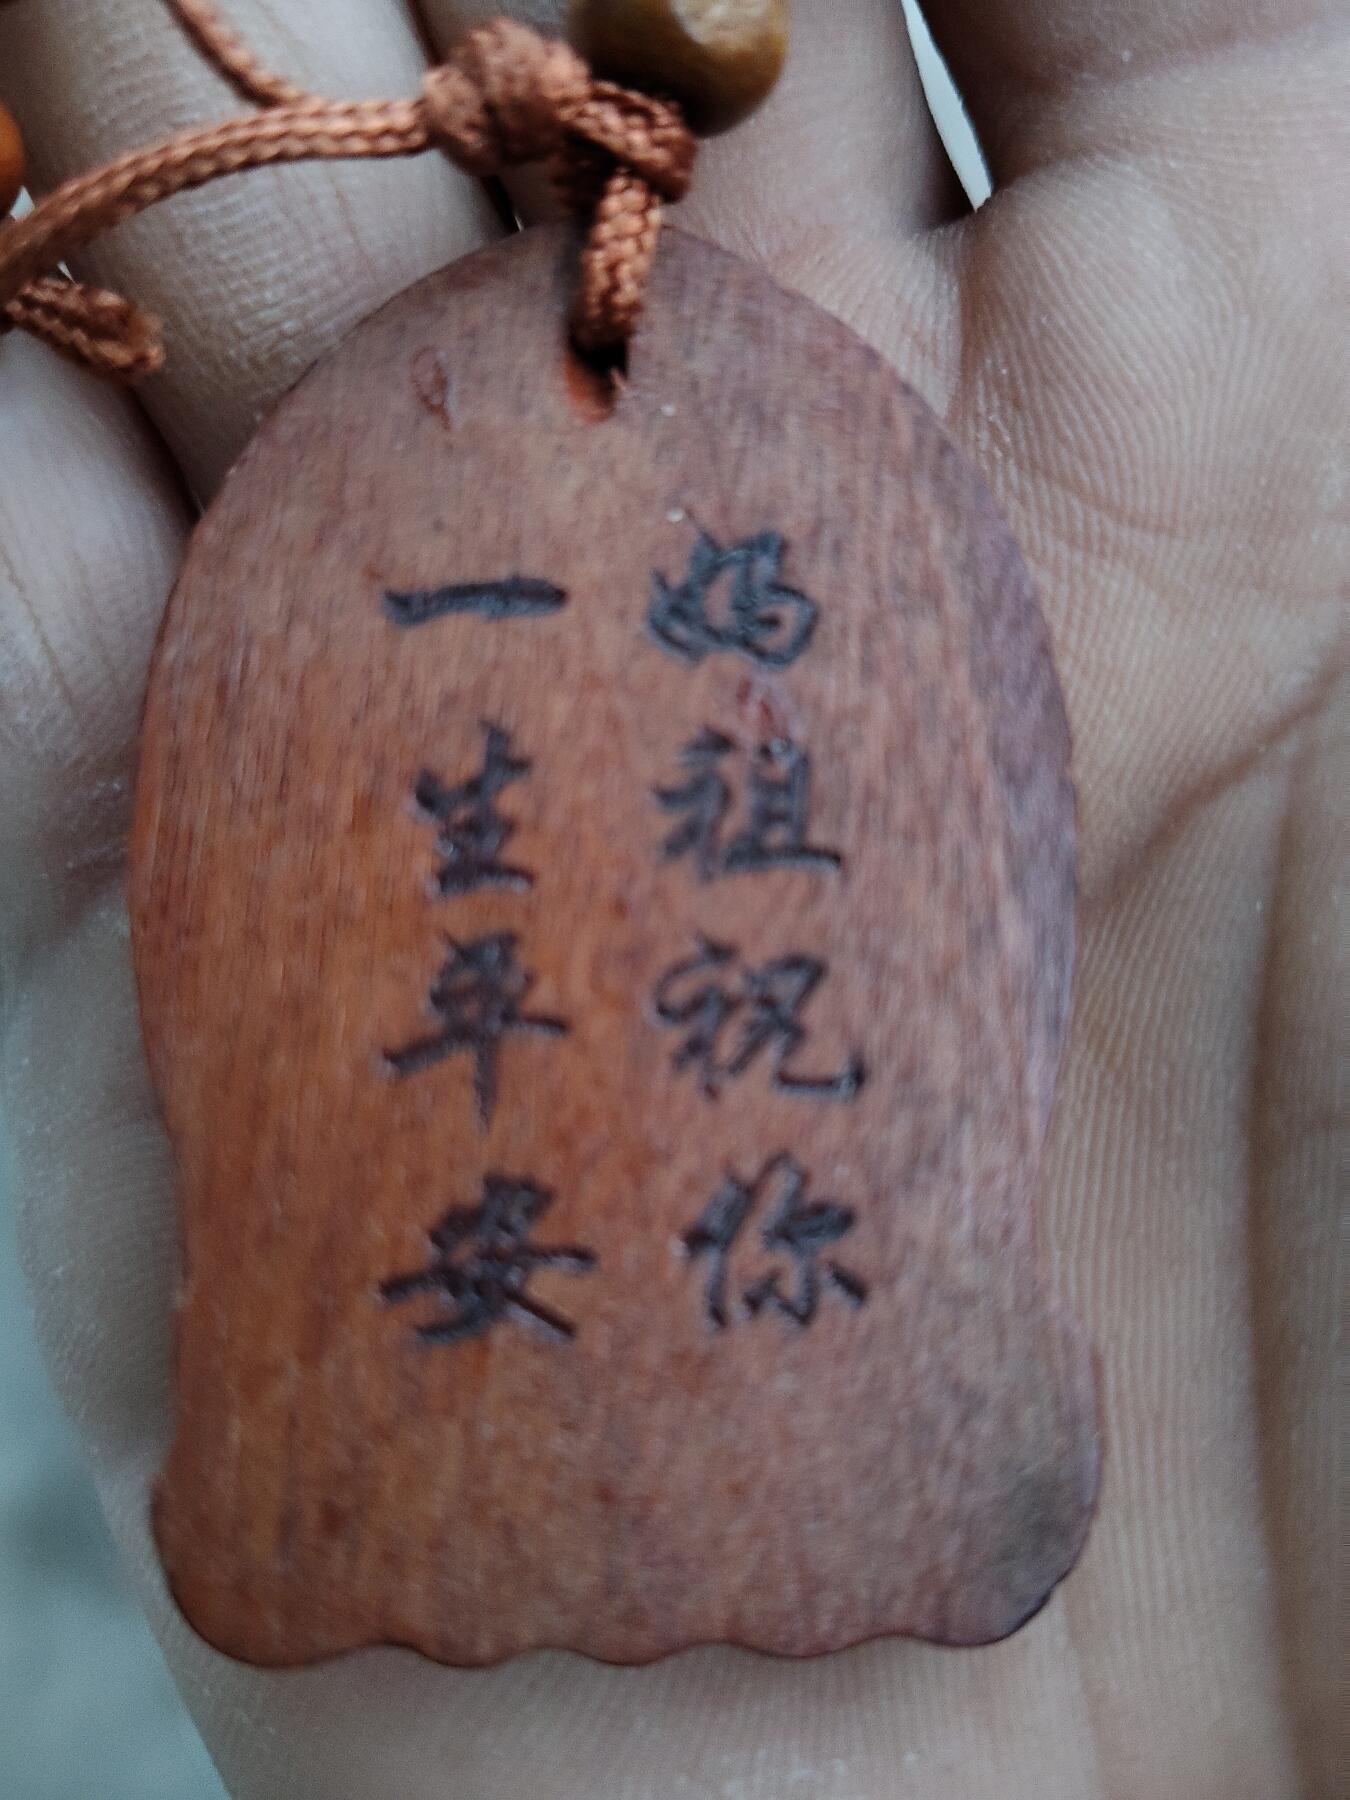 妈祖祝你
一生平安